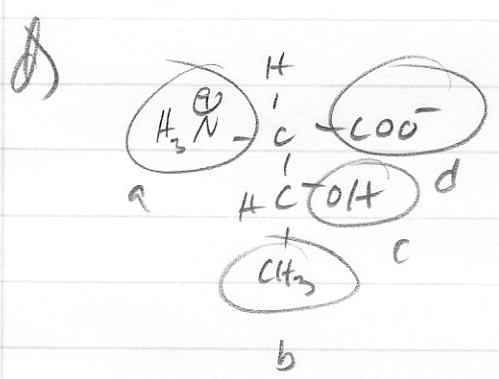 H
H₃N⊕ - C - COO⁻
a d
H C - OH
c
CH₃
b